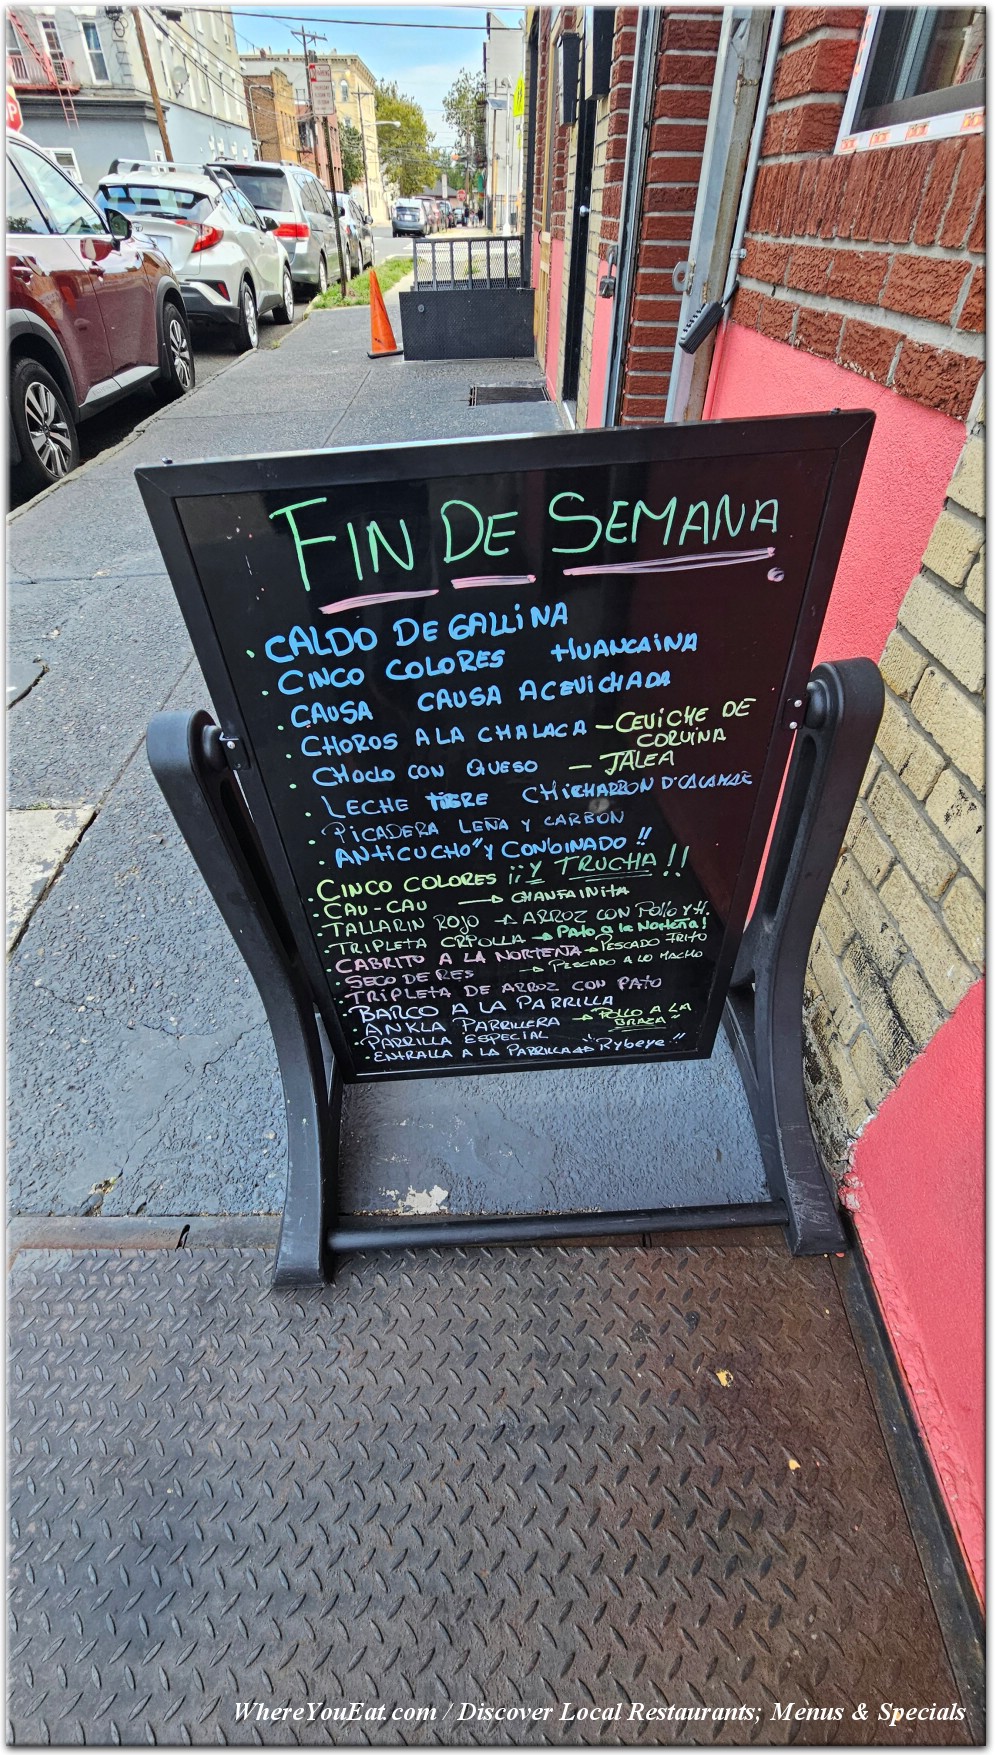 FIN DE SEMANA
CALDO DE GALLINA
CINCO COLORES HUANCAINA
CAUSA CAUSA ACEVICHADA
CHOROS A LA CHALACA - CEVICHE DE
CORVINA
CHOCLO CON QUESO - JALEA
LECHE TIGRE CHICHARRON D'CALAMAR
PICADERA LEÑA Y CARBON
ANTICUCHO" Y CONBINADO !!
CINCO COLORES ¡¡Y TRUCHA!!
CAU-CAU → CHANFAINITA
TALLARIN ROJO → ARROZ CON POLLO Y H.
TRIPLETA CRIOLLA → Pato a la Norteña!
CABRITO A LA NORTEÑA → PESCADO FRITO
SECO DE RES → PESCADO A LO MACHO
TRIPLETA DE ARROZ CON PATO
BARCO A LA PARRILLA
ANKLA PARRILLERA → POLLO A LA
BRAZA
PARRILLA ESPECIAL
ENTRALLA A LA PARRILLA → "Rybeye"
WhereYouEat.com / Discover Local Restaurants; Menus & Specials